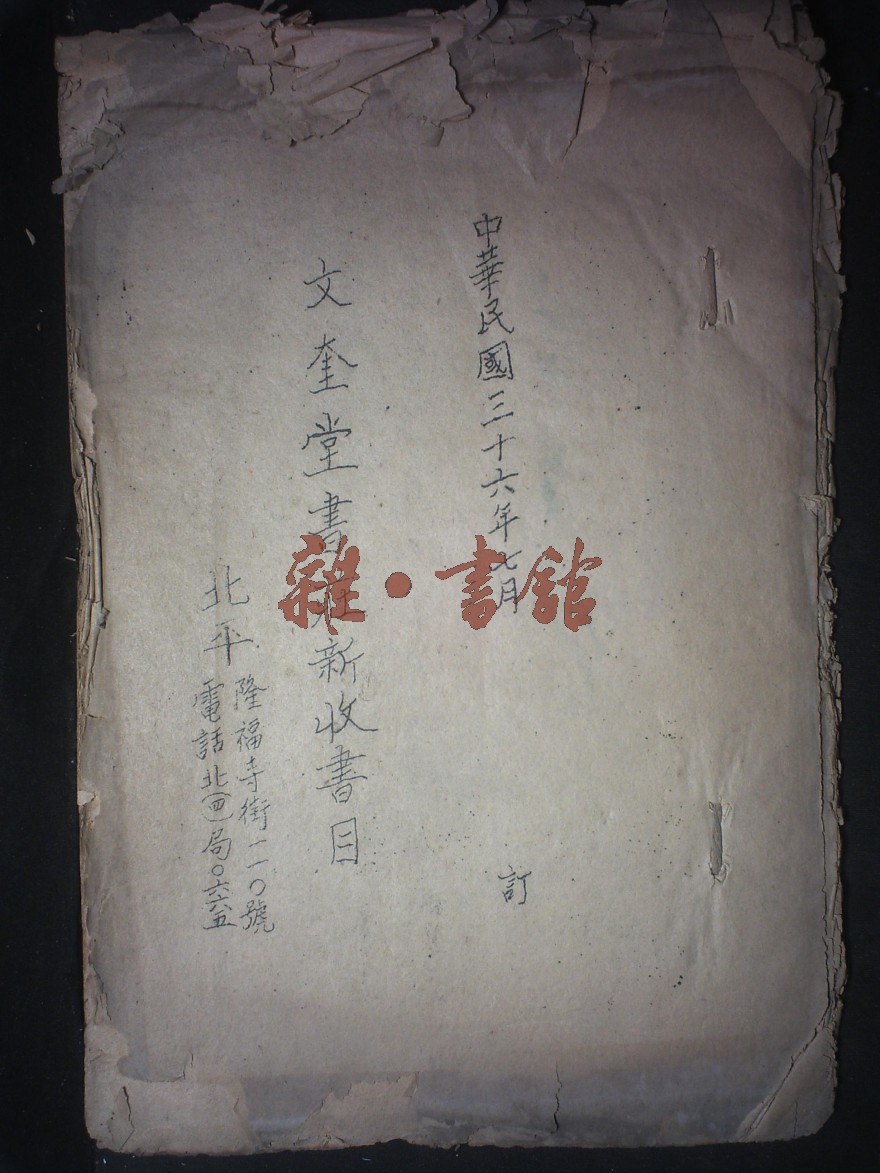 中華民國三十六年七月
訂
文奎堂書莊新收書目
北平
隆福寺街一一〇號
電話北(四)局〇六六五
雜·書館